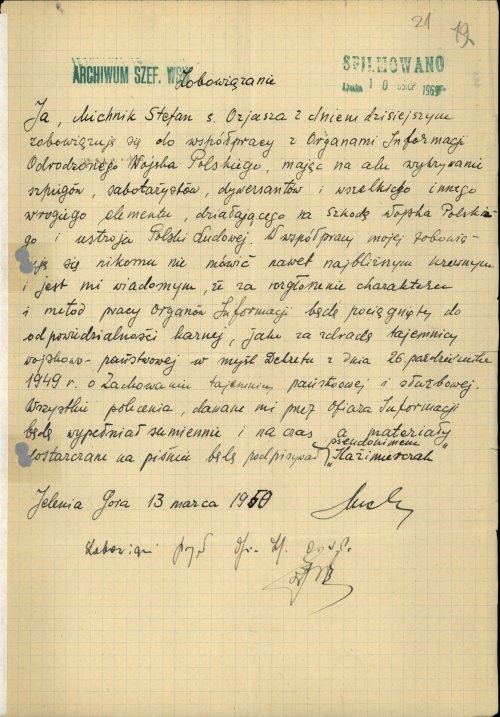 21 19.
ARCHIWUM SZEF. WSW
SFILMOWANO
dnia 10 1969
Zobowiązanie
Ja, Michnik Stefan s. Ozjasza z dniem dzisiejszym
zobowiązuję się do współpracy z Organami Informacji
Odrodzonego Wojska Polskiego, mając na celu wykrywanie
szpiegów, sabotarzystów, dywersantów i wszelkiego innego
wrogiego elementu, działającego na szkodę Wojska Polskie-
go i ustroju Polski Ludowej. W współpracy mojej zobowią-
zuję się nikomu nie mówić nawet najbliższym krewnym
i jest mi wiadomym, że za rozgłoszenie charakteru
i metód pracy Organów Informacji będę pociągnięty do
odpowiedzialności karnej, jako za zdradę tajemnicy
wojskowo-państwowej w myśl Dekretu z dnia 26 października
1949 r. o Zachowaniu tajemnicy państwowej i służbowej.
Wszystkie polecenia, dawane mi przez Oficera Informacji
będę wypełniał sumiennie i na czas a materiały
dostarczane na piśmie będę podpisywał pseudonimem
"Kazimierczak"
Jelenia Góra 13 marca 1950